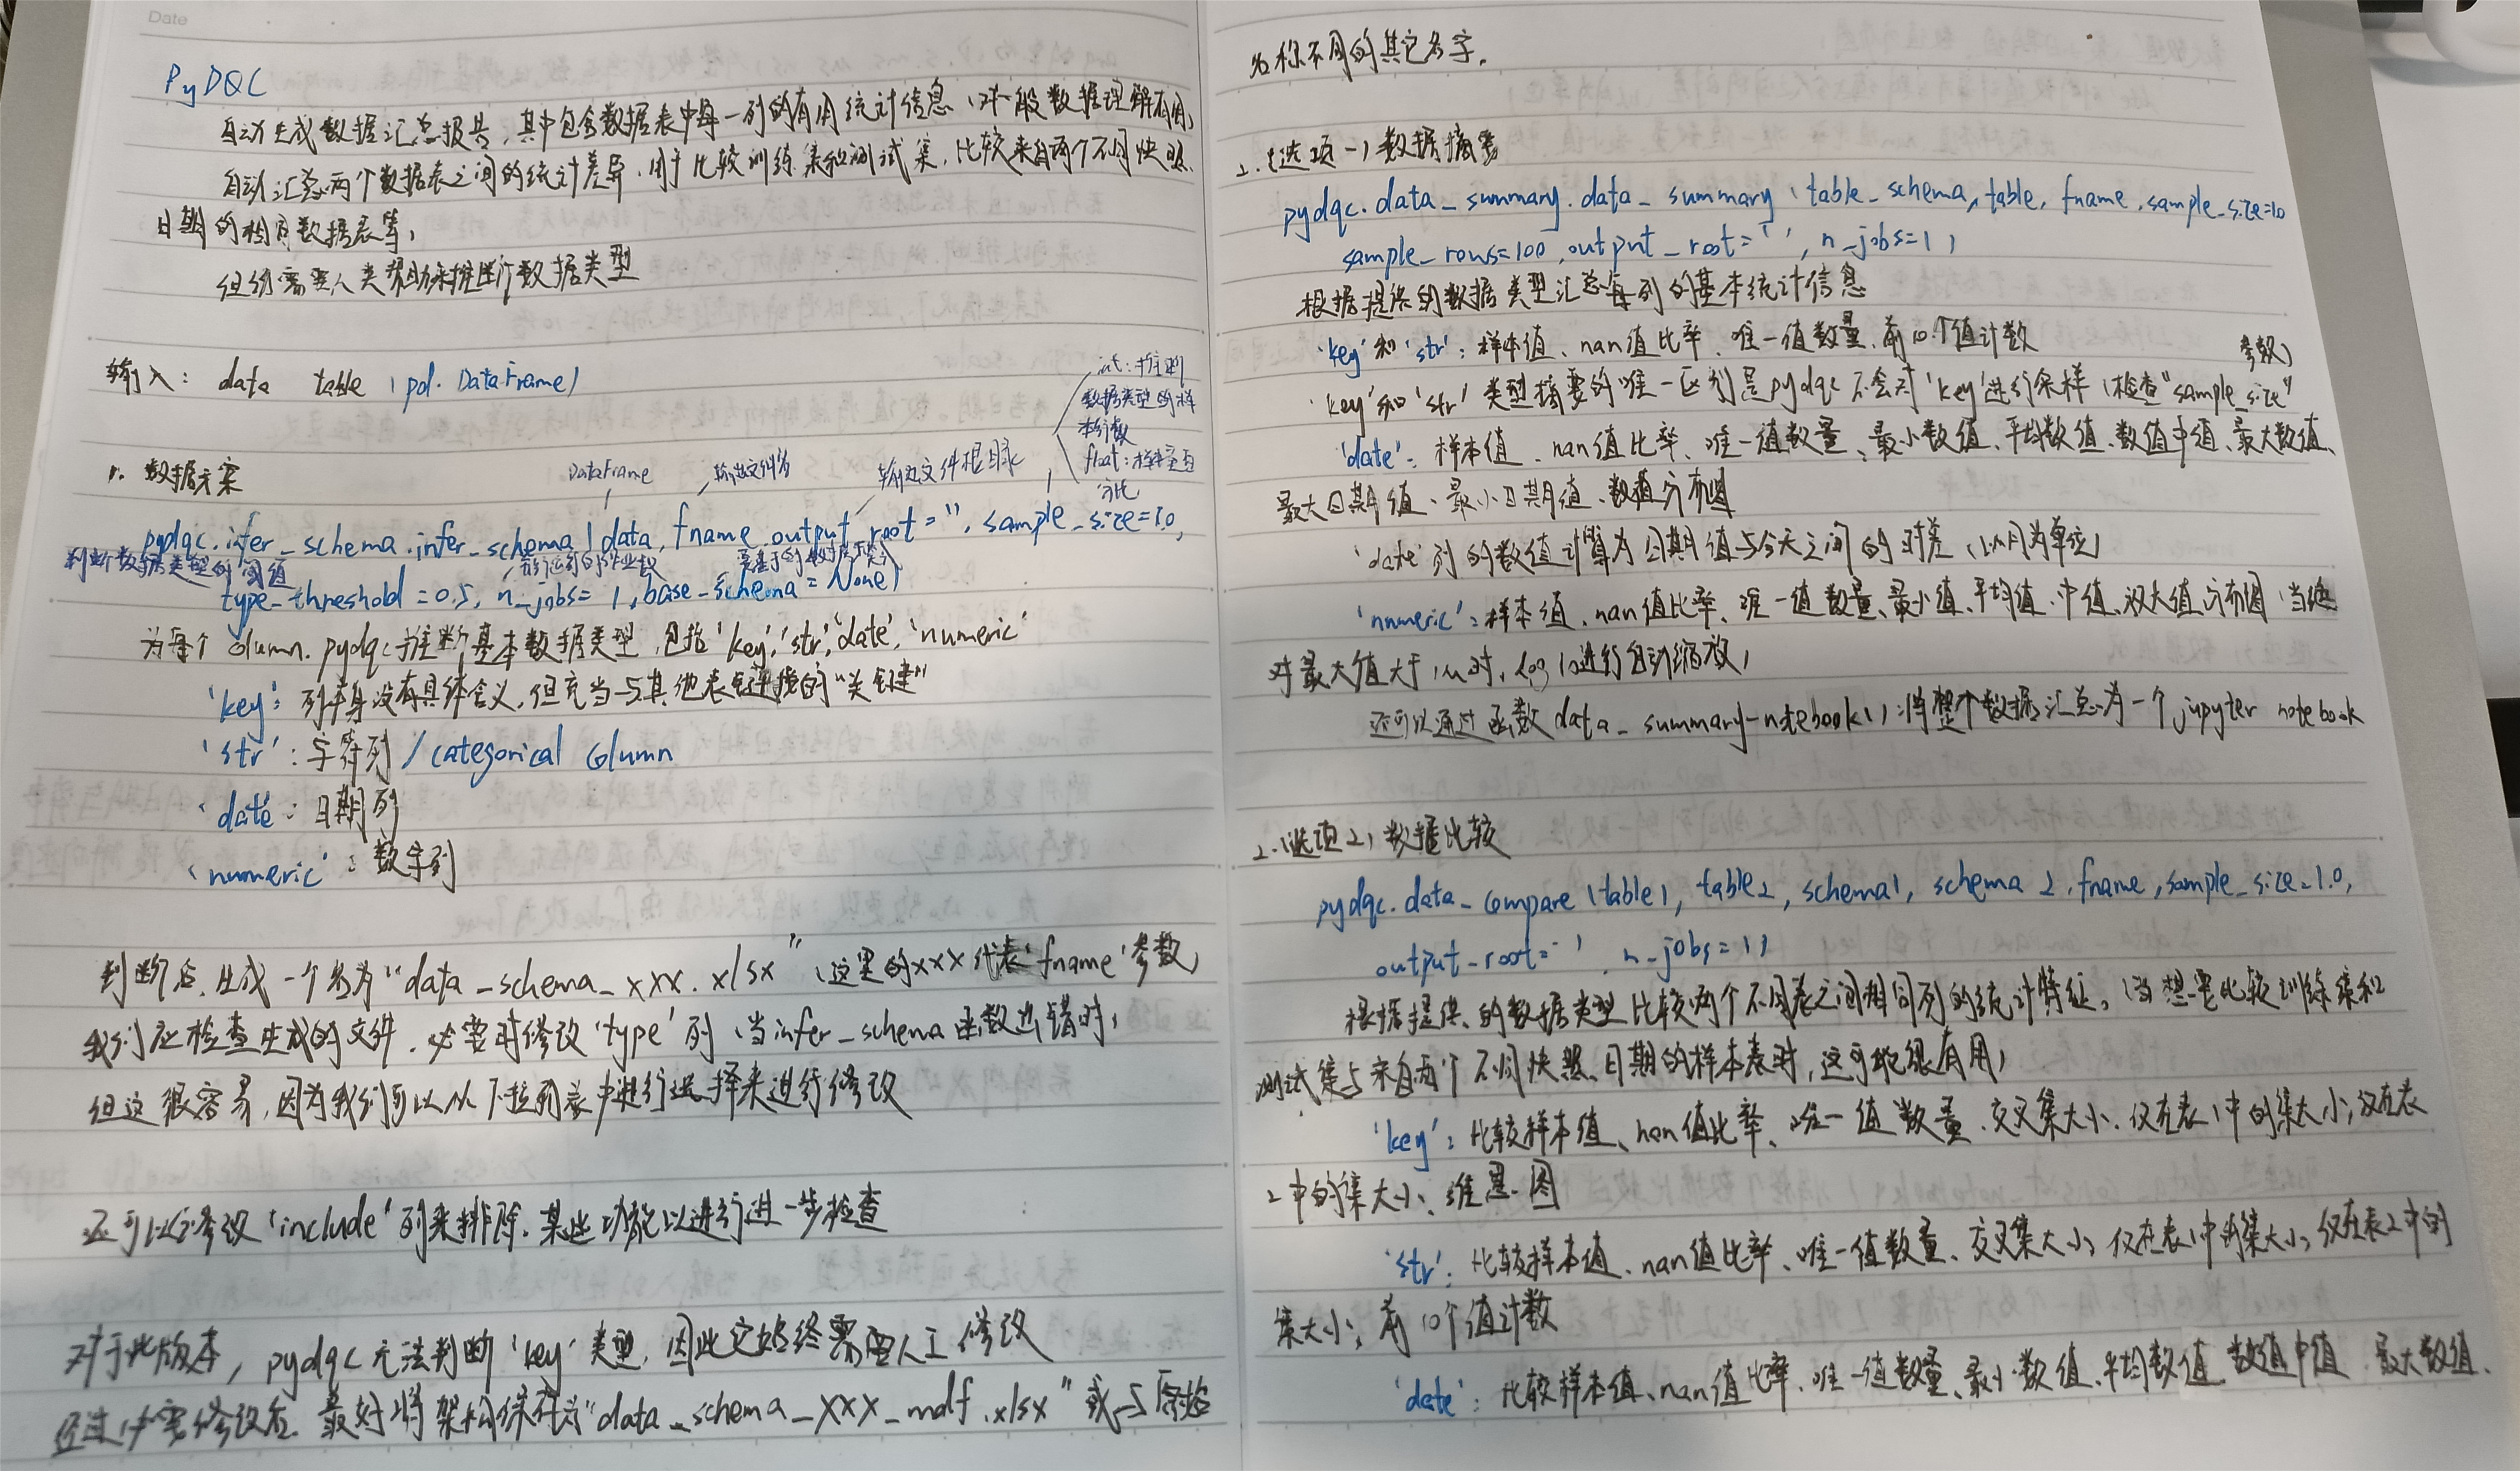 Date
PyDQC
自动生成数据汇总报告，其中包含数据表中每一列的有用统计信息（对一般数据理解有用）
自动汇总两个数据表之间的统计差异（用于比较训练集和测试集，比较来自两个不同快照
日期的相同数据表等）
但仍需要人类帮助来推断数据类型
输入： data table (pd. DataFrame)
int：推断
数据类型的样
本行数
float：样本百
分比
1. 数据方案
DataFrame 输出文件名 输出文件根目录
pydqc.infer_schema.infer_schema (data, fname, output_root = '', sample_size=1.0,
判断数据类型的阈值 并行运行的作业数 要基于的数据方案
type_threshold = 0.5, n_jobs = 1, base_schema = None)
为每个 column. pydqc 推断基本数据类型，包括'key','str','date','numeric'
'key'：列本身没有具体含义，但充当与其他表链接的"关键"
'str'：字符列 / categorical column
'date'：日期列
'numeric'：数字列
判断后，生成一个名为"data_schema_xxx.xlsx"（这里的xxx代表'fname'参数）
我们应检查生成的文件，必要时修改'type'列（当infer_schema函数出错时）
但这很容易，因为我们可以从下拉列表中进行选择来进行修改
还可以修改'include'列来排除某些功能以进行进一步检查
对于此版本，pydqc无法判断'key'类型，因此它始终需要人工修改
经过必要修改后，最好将架构保存为"data_schema_XXX_mdf.xlsx"或与原始
名称不同的其它名字。
2.（选项一）数据摘要
pydqc.data_summary.data_summary (table_schema, table, fname, sample_size=1.0
sample_rows=100, output_root='', n_jobs=1)
根据提供的数据类型汇总每列的基本统计信息
'key'和'str'：样本值、nan值比率、唯一值数量、前10个值计数
参数）
'key'和'str'类型摘要的唯一区别是pydqc不会对'key'进行采样（检查"sample_size"
'date'：样本值、nan值比率、唯一值数量、最小数值、平均数值、数值中值、最大数值、
最大日期值、最小日期值、数值分布图
'date'列的数值计算为日期值与今天之间的时差（以月为单位）
'numeric'：样本值、nan值比率、唯一值数量、最小值、平均值、中值、最大值、分布图（当绝
对最大值大于1M时，log10进行自动缩放）
还可以通过函数data_summary_notebook()将整个数据汇总为一个jupyter notebook
2.（选项2）数据比较
pydqc.data_compare (table1, table2, schema1, schema2, fname, sample_size=1.0,
output_root='', n_jobs=1)
根据提供的数据类型比较两个不同表之间相同列的统计特征。（当想要比较训练集和
测试集与来自两个不同快照日期的样本表时，这可能很有用）
'key'：比较样本值、nan值比率、唯一值数量、交叉集大小、仅在表1中的集大小，仅在表
2中的集大小、维恩图
'str'：比较样本值、nan值比率、唯一值数量、交叉集大小，仅在表1中的集大小，仅在表2中的
集大小，前10个值计数
'date'：比较样本值、nan值比率、唯一值数量、最小数值、平均数值、数值中值、最大数值、